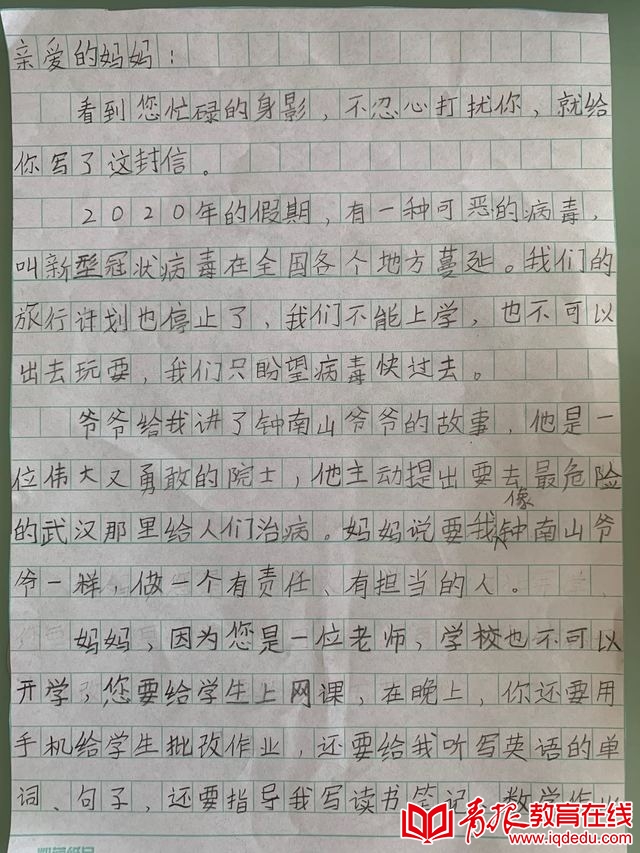 亲爱的妈妈：
看到您忙碌的身影，不忍心打扰你，就给
你写了这封信。
2020年的假期，有一种可恶的病毒，
叫新型冠状病毒在全国各个地方蔓延。我们的
旅行计划也停止了，我们不能上学，也不可以
出去玩耍，我们只盼望病毒快过去。
爷爷给我讲了钟南山爷爷的故事，他是一
位伟大又勇敢的院士，他主动提出要去最危险
的武汉那里给人们治病。妈妈说要我像钟南山爷
爷一样，做一个有责任、有担当的人。
妈妈，因为您是一位老师，学校也不可以
开学，您要给学生上网课，在晚上，你还要用
手机给学生批改作业，还要给我听写英语的单
词、句子，还要指导我写读书笔记，数学作业
青报教育在线
www.iqdedu.com